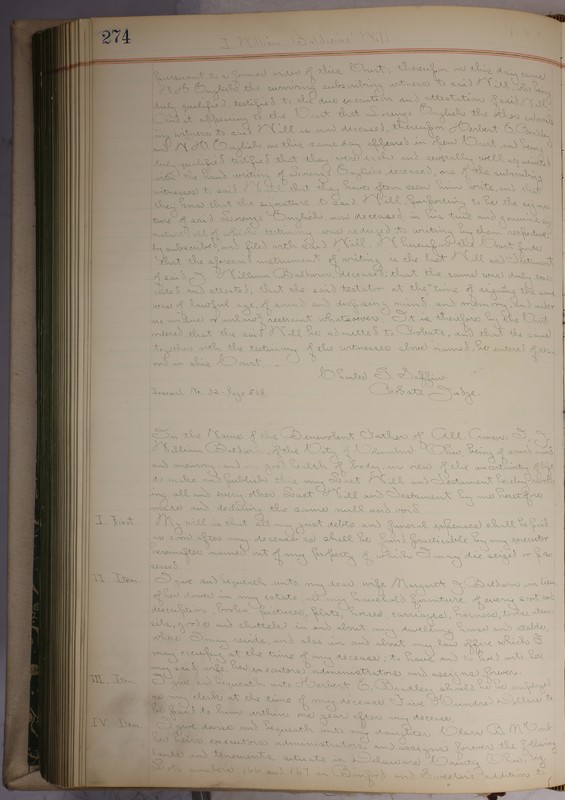 274
J. William Baldwin's Will
pursuant to a former order of this Court, thereupon on this day came
English the surviving subscribing witness to said Will, who being
duly qualified, testified to the due execution and attestation of said Will
And it appearing to the Court that English the other subscrib
ing witness to said Will is now deceased, thereupon Herbert
and English on this same day appeared in open Court and being
duly qualified testified that they were each and severally well acquainted
with the hand writing of English deceased, one of the subscribing
witnesses to said Will, that they have often seen him write, and that
they know that the signature to said Will purporting to be the signa
ture of said English, now deceased is his true and genuine sig
nature, all of which testimony was reduced to writing by them respective
ly subscribed, and filed with said Will. Whereupon the Court finds
that the aforesaid instrument of writing is the last Will and Testament
of said J. William Baldwin, deceased; that the same was duly exe
cuted and attested; that the said testator at the time of signing the same
was of lawful age, of sound and disposing mind and memory, and under
no undue or unlawful restraint whatsoever. It is therefore by the Court
ordered that the said Will be admitted to Probate, and that the same
together with the testimony of the witnesses above named, be entered of rec
ord in this Court.
Charles
Probate Judge.
Journal No. 32 Page
In the Name of the Benevolent Father of All Amen: I, J.
William Baldwin, of the City of Columbus Ohio being of sound mind
and memory, and in good health of body, in view of the uncertainty of life
do make and publish this my Last Will and Testament hereby revok
ing all and every other Last Will and Testament by me heretofore
made and declaring the same null and void
I. First. My will is that all my just debts and funeral expenses shall be paid
as soon after my decease as shall be found practicable by my executor
hereinafter named out of my property of which I may die seized or pos
sessed
II. Item. I give and bequeath unto my dear wife Margaret J. Baldwin in lieu
of her dower in my estate all my household furniture of every sort and
description, books, pictures, plate, horses, carriages, harness,
goods and chattels in and about my dwelling house and stable,
where I may reside, and also in and about my law office which I
may occupy at the time of my decease; to have and to hold unto her
my said wife her executors administrators and assigns forever.
III. Item. I give and bequeath unto Herbert should he be employed
as my clerk at the time of my decease Five Hundred Dollars to
be paid to him within one year after my decease.
IV. Item. I give devise and bequeath unto my daughter Clara B.
her heirs executors administrators and assigns forever the following
lands and tenements situate in Delaware County Ohio,
Lots numbers 166 and 167 in and addition to